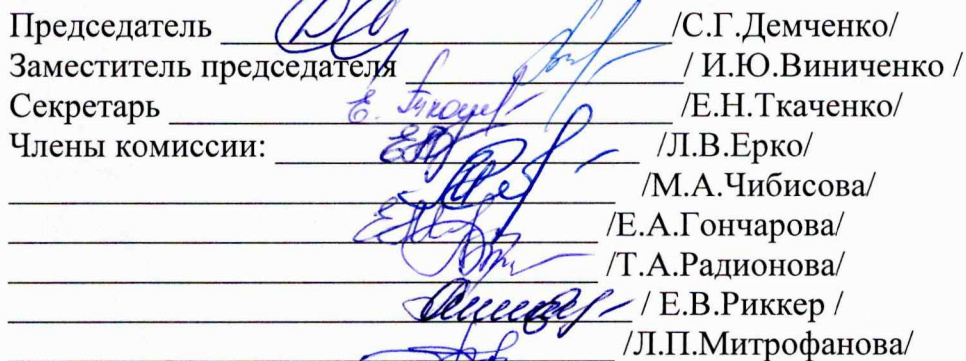 Председатель ____________________________/С.Г.Демченко/
Заместитель председателя _________________/ И.Ю.Виниченко /
Секретарь _______________________________/Е.Н.Ткаченко/
Члены комиссии: _______________________ /Л.В.Ерко/
______________________________________ /М.А.Чибисова/
_____________________________________ /Е.А.Гончарова/
_____________________________________ /Т.А.Радионова/
_______________________________________ / Е.В.Риккер /
______________________________________ /Л.П.Митрофанова/